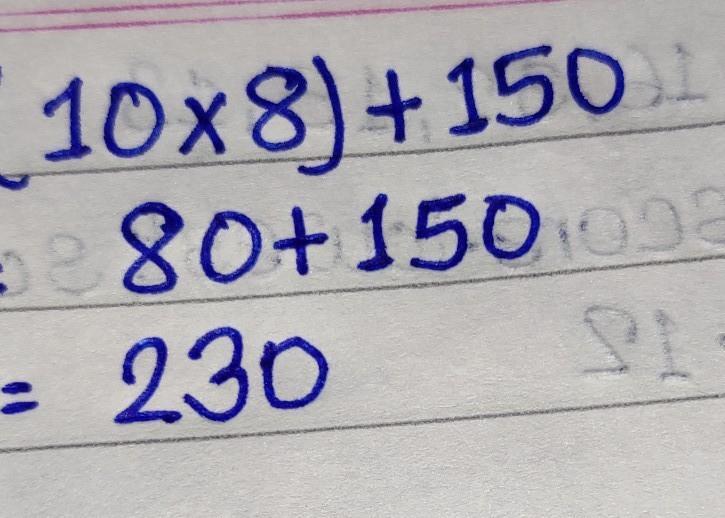 (10×8)+150
= 80+150
= 230